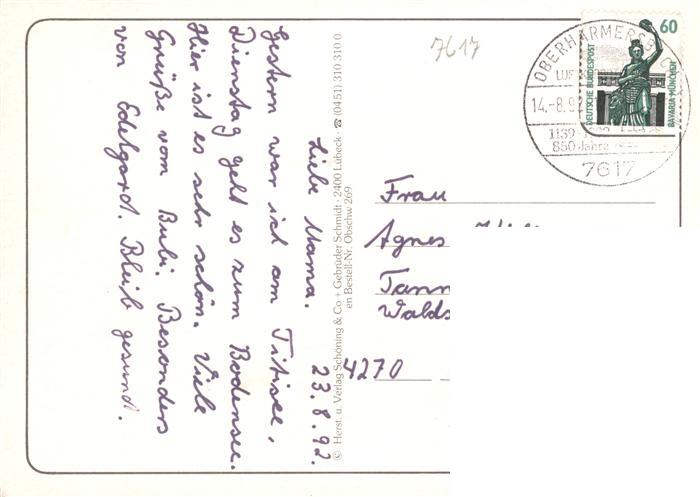 Liebe Mama. 23.8.92.
Gestern war ich am Titisee,
Dienstag geht es zum Bodensee.
Hier ist es sehr schön. Viele
Grüße vom Bubi. Besonders
von Edelgard. Bleib gesund.
© Herst. u. Verlag Schöning & Co + Gebrüder Schmidt · 2400 Lübeck · ☎ (0451) 310 310 0
en Bestell-Nr. Obschw 269
7617
OBERHARMERSB
LUF
14.-8.92
1139-
850 Jahre
7617
60
DEUTSCHE BUNDESPOST
BAVARIA MÜNCHEN
Frau
Agnes
Tann
Walds
4270